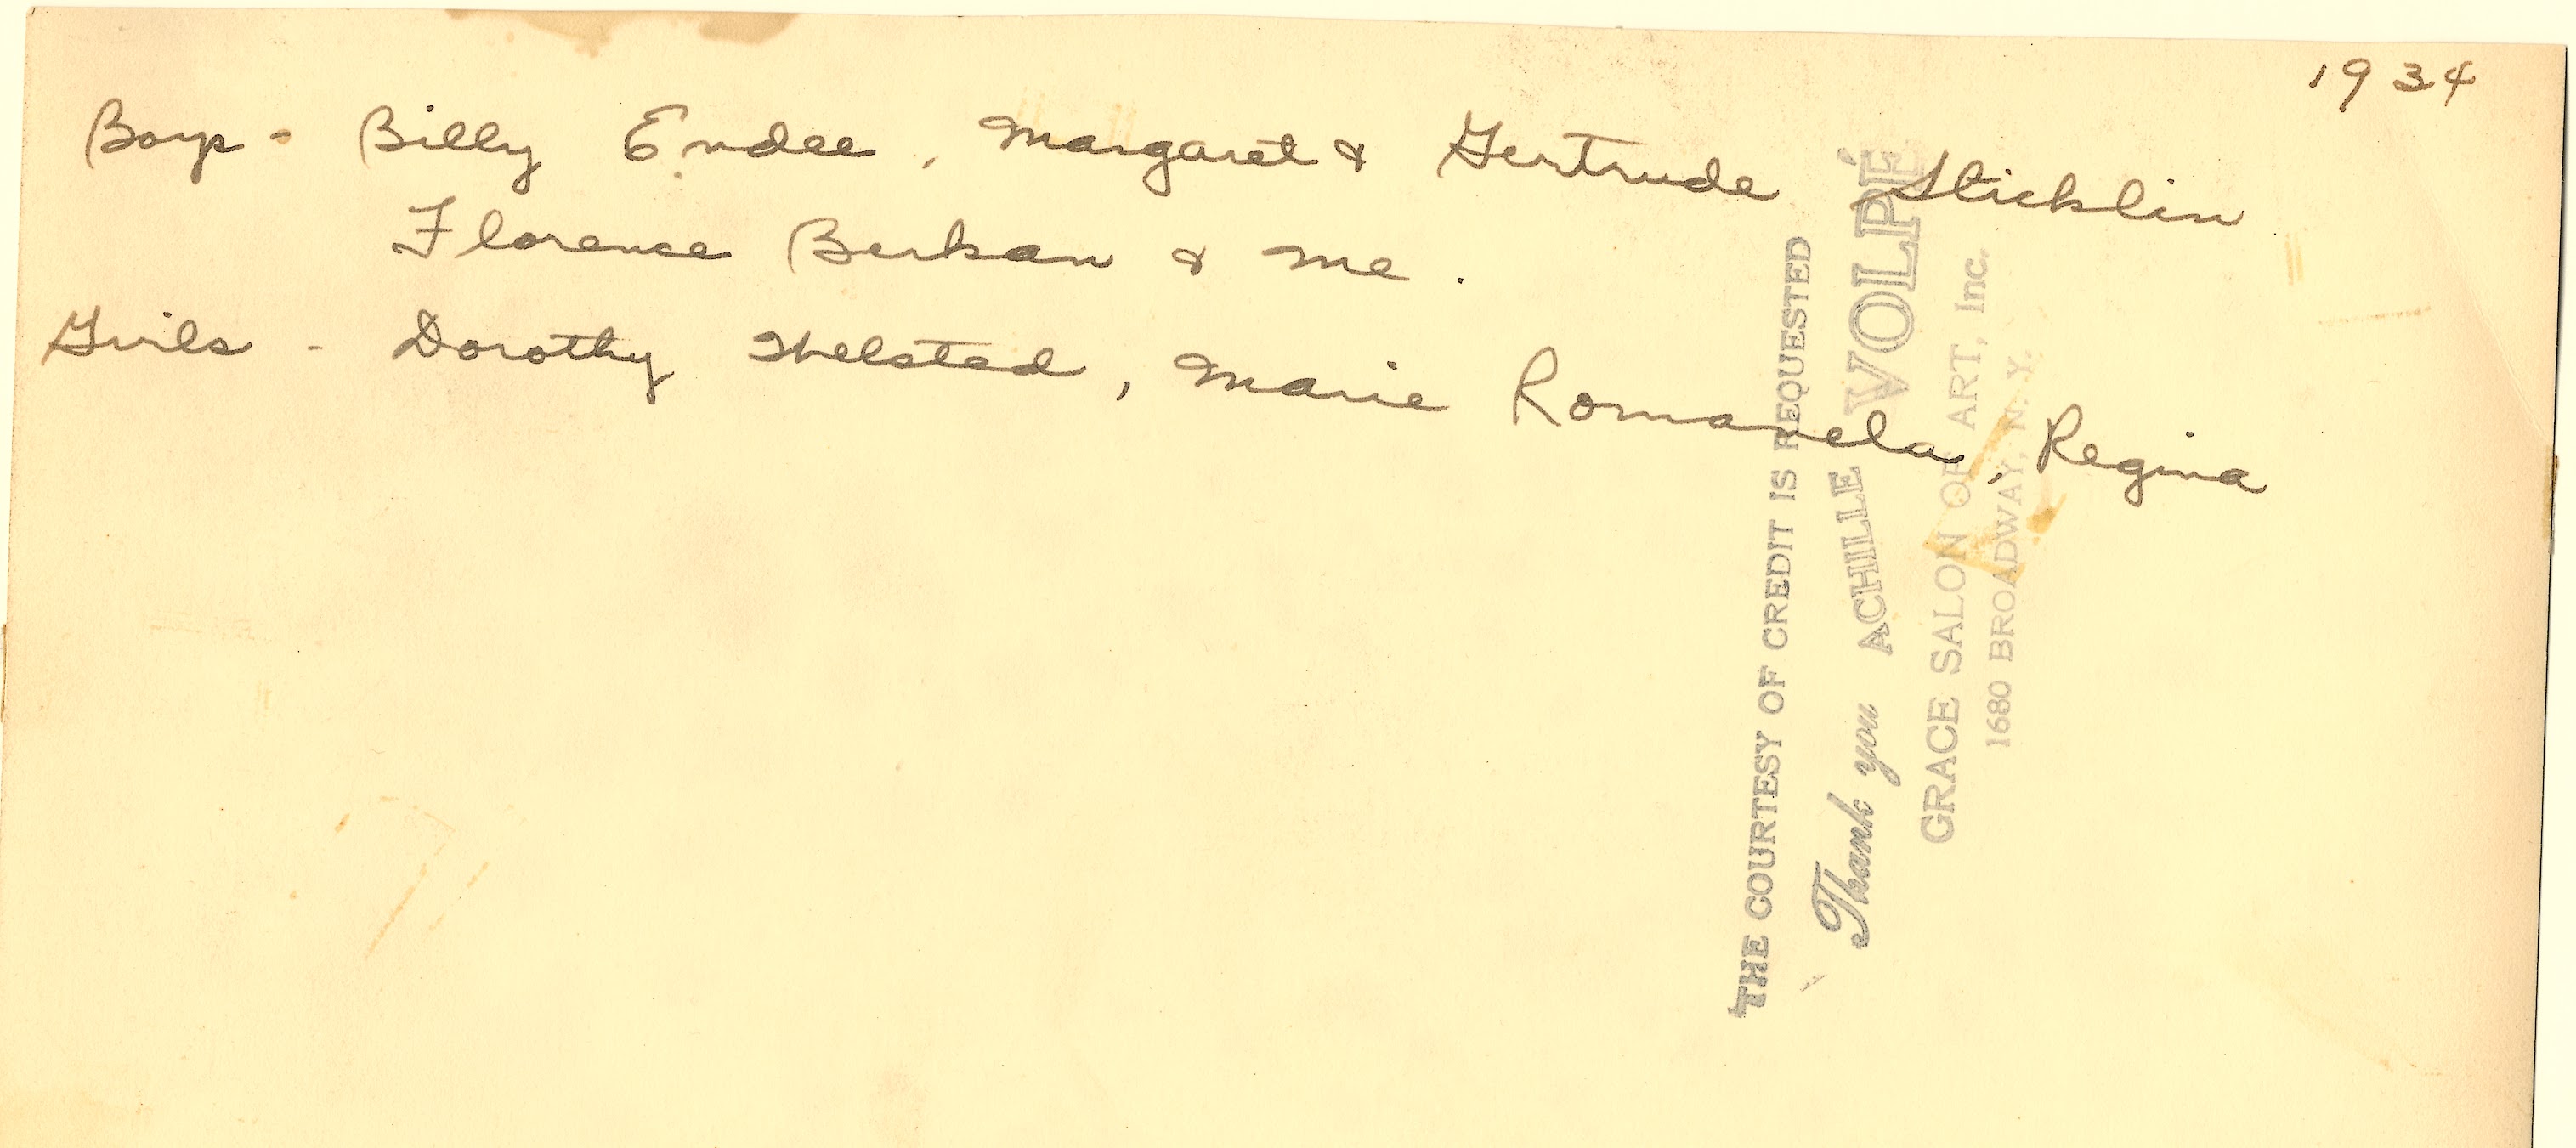 1934
Boys - Billy Endee, Margaret & Gertrude Sticklin
Florence Berkan & me.
Girls - Dorothy Thelsted, Marie Romanela, Regina
THE COURTESY OF CREDIT IS REQUESTED
Thank you ACHILLE VOLPÉ
GRACE SALON OF ART, Inc.
1680 BROADWAY, N. Y.